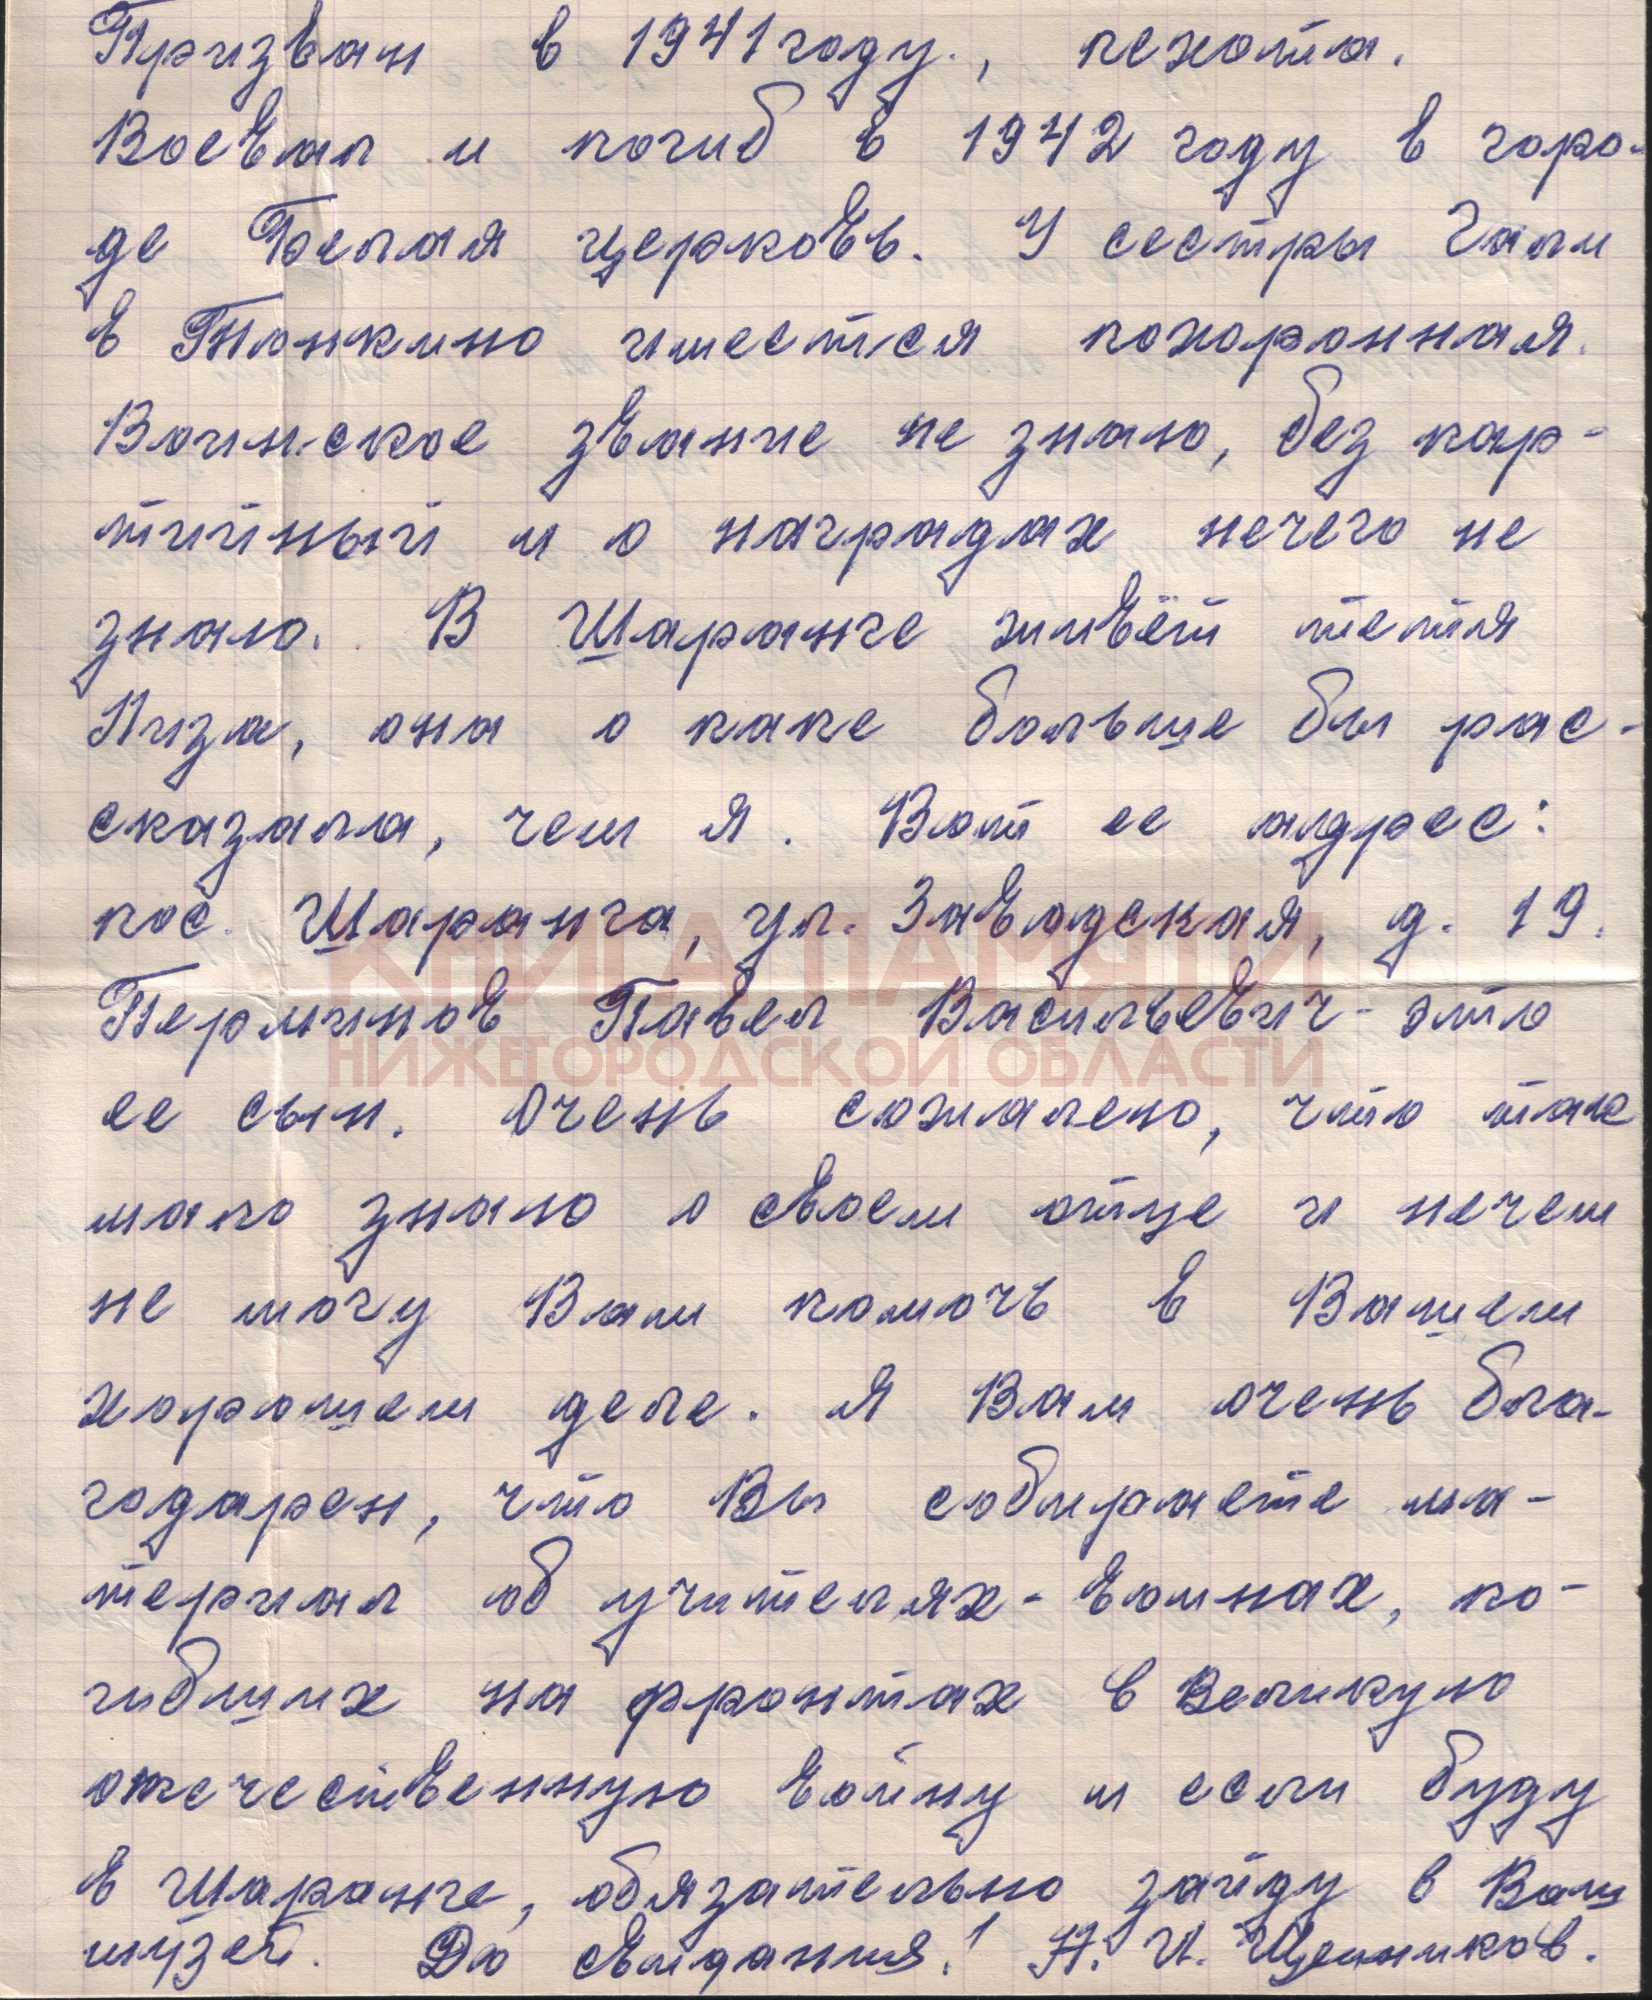 Призван в 1941 году., пехота.
Воевал и погиб в 1942 году в горо-
де Белая церковь. У сестры Гали
в Тонкино имеется похоронная.
Воинское звание не знаю, без пар-
тийный и о наградах нечего не
знаю. В Шаранге живёт тетя
Лиза, она о папе больше бы рас-
сказала, чем я. Вот ее адрес:
пос. Шаранга, ул. Заводская, д. 19.
КНИГА ПАМЯТИ
Перминов Павел Васильевич - это
НИЖЕГОРОДСКОЙ ОБЛАСТИ
ее сын. Очень сожалею, что так
мало знаю о своем отце и нечем
не могу Вам помочь в Вашем
хорошем деле. Я Вам очень бла-
годарен, что Вы собираете ма-
териал об учителях - воинах, по-
гибших на фронтах в Великую
отечественную войну и если буду
в Шаранге, обязательно зайду в Ваш
музей. До свидания! Н. И.